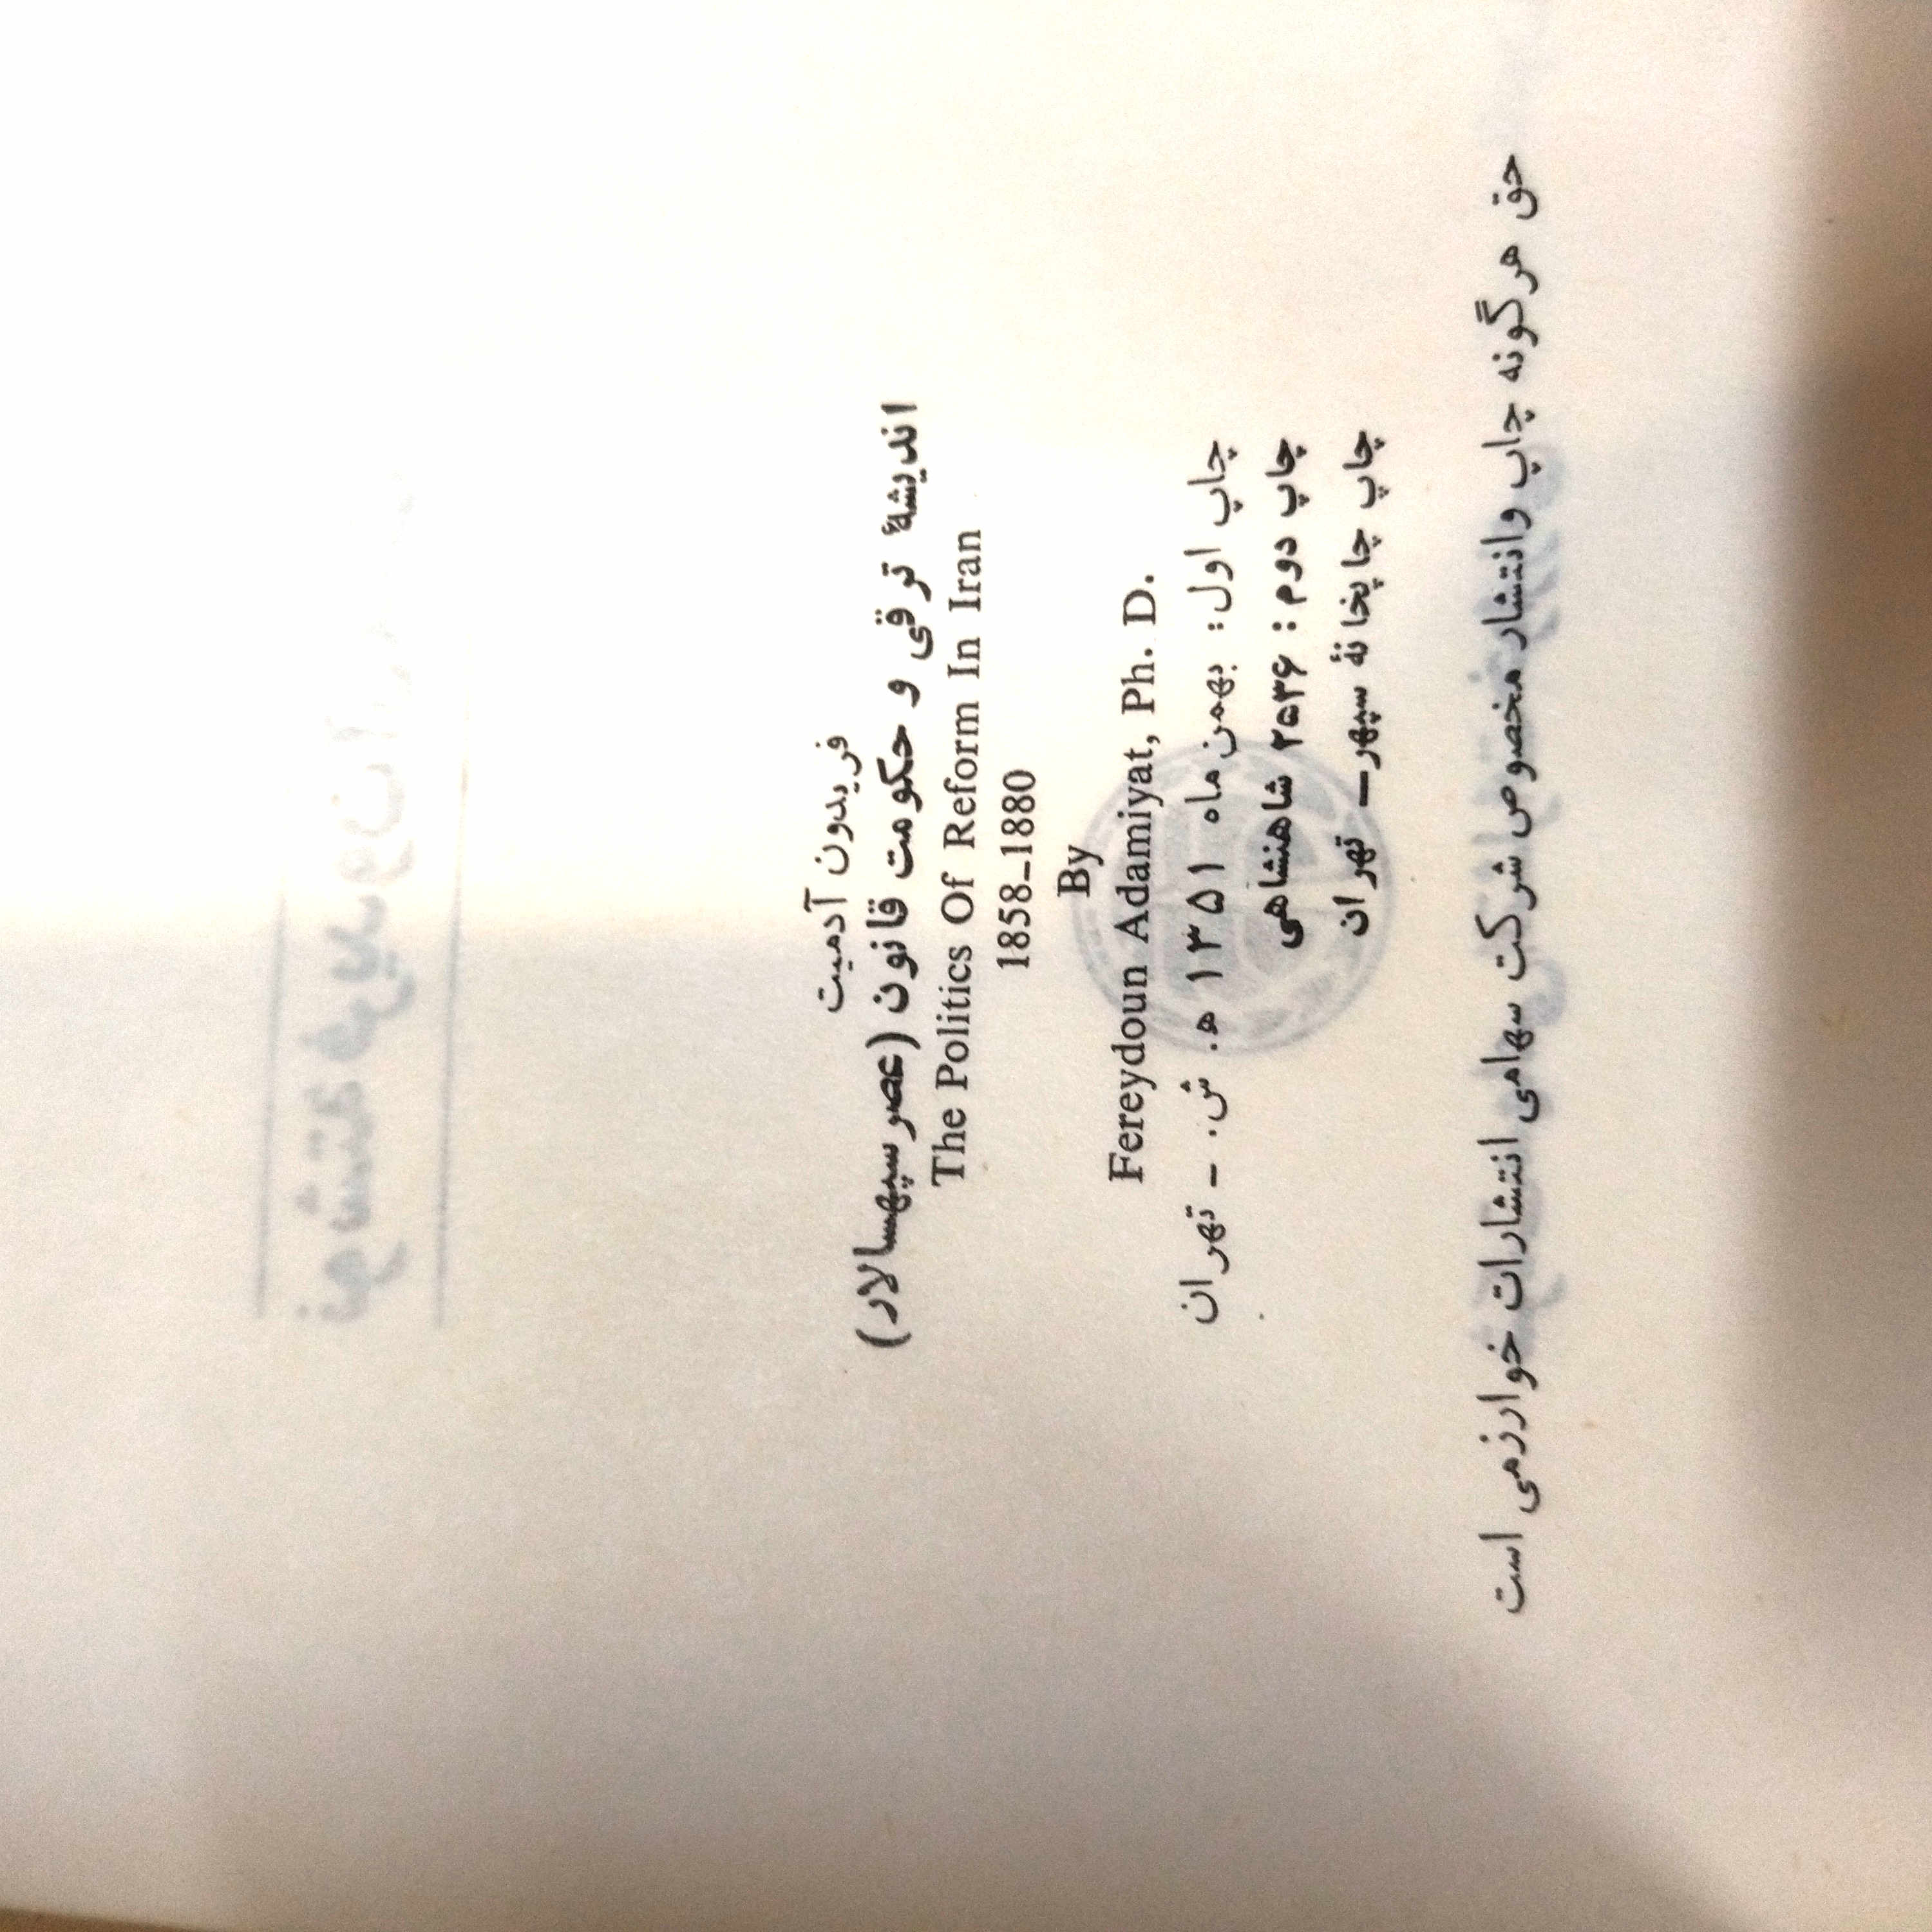 فریدون آدمیت
اندیشهٔ ترقی و حکومت قانون (عصر سپهسالار)
The Politics Of Reform In Iran
1858-1880
By
Fereydoun Adamiyat, Ph. D.
چاپ اول: بهمن ماه ۱۳۵۱ ه. ش. - تهران
چاپ دوم: ۲۵۳۶ شاهنشاهی
چاپ چاپخانهٔ سپهر- تهران
حق هرگونه چاپ وانتشار مخصوص شرکت سهامی انتشارات خوارزمی است